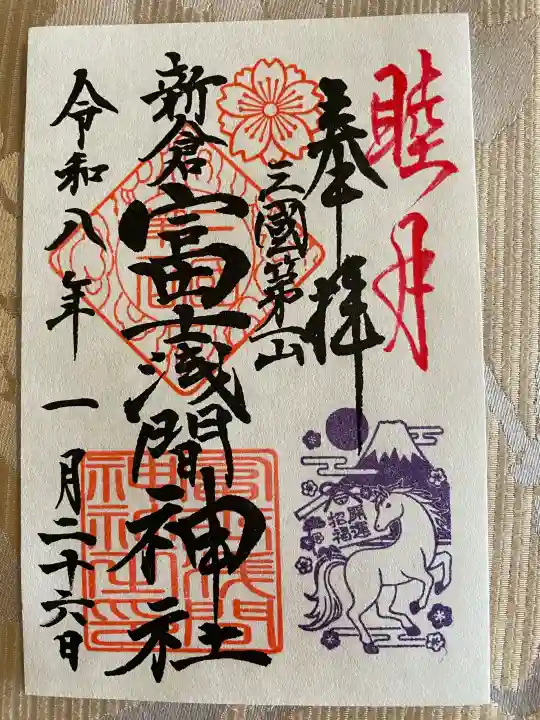 睦月
奉拝
三國第一山
新倉
富士浅間神社
令和八年 一月二十六日
開運
招福